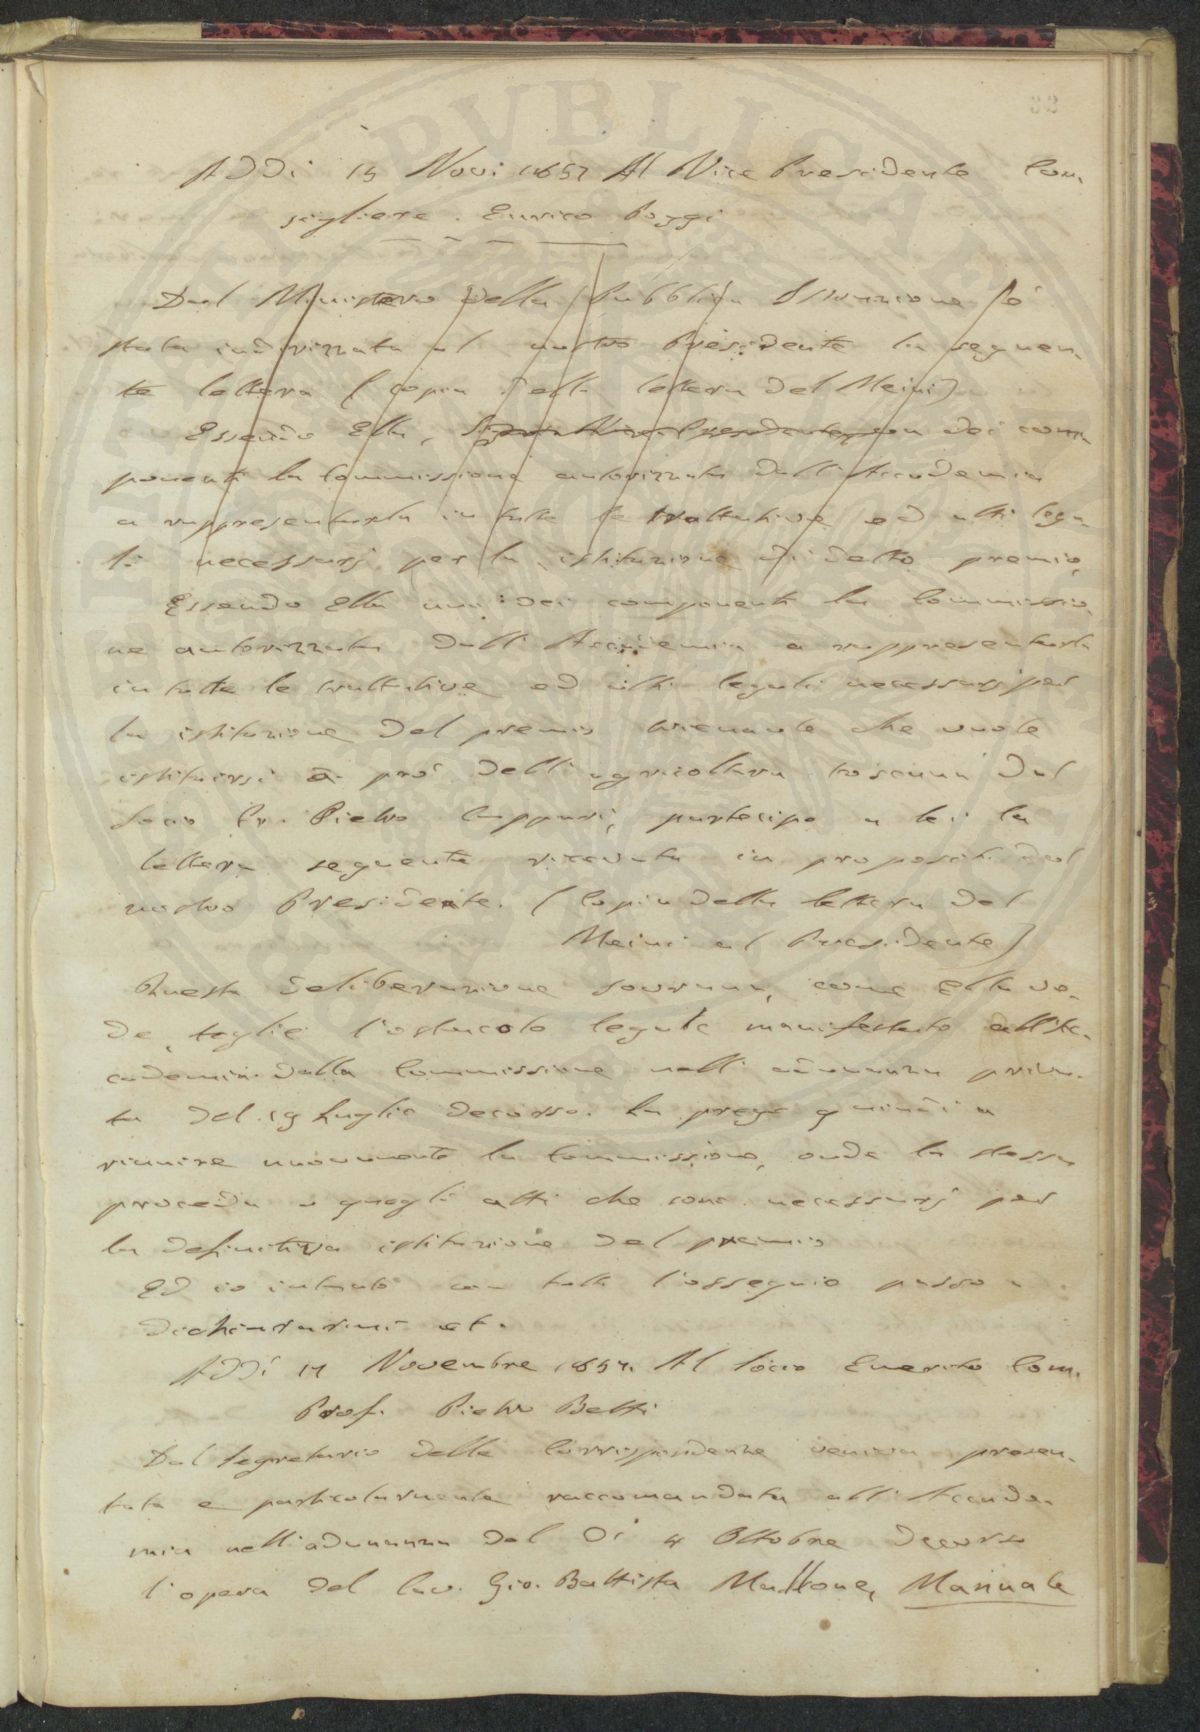 32
Addi 15 Novi 1857 Al Vice Presidente Con=
sigliere. Enrico Poggi
Dal Ministero della Pubblica Istruzione è
stata indirizzata al nostro Presidente la seguen=
te lettera (copia della lettera del Meini)
Essendo Ella, dei com=
ponenti la Commissione autorizzata dall'Accademia
a rappresentarla in tutte le trattative ed atti lega=
li necessarj per la istituzione di detto premio,
Essendo Ella uno dei componenti la Commissio=
ne autorizzata dall'Accademia a rappresentarla
in tutte le trattative ed atti legali necessarj per
la istituzione del premio triennale che vuole
istituirsi a prò dell'agricoltura toscana dal
Socio Pietro Cuppari, partecipo a Lei la
lettera seguente ricevuta in proposito dal
nostro Presidente. (Copia della lettera del
Meini al Presidente)
Questa deliberazione sovrana, come Ella ve=
de, toglie l'ostacolo legale manifestato all'Ac=
cademia dalla Commissione nell'adunanza priva=
ta del 19 Luglio decorso. La prego quindi a
riunire nuovamente la Commissione, onde la stessa
proceda a quegli atti che sono necessarj per
la definitiva istituzione del premio
Ed io intanto con tutto l'ossequio passo a
dichiararmi et.
Addi 17 Novembre 1857. Al Socio Emerito Com.
Prof. Pietro Betti
Dal Segretario delle Corrispondenze veniva presen=
tata e particolarmente raccomandata all'Accade=
mia nell'adunanza del dì 4 Ottobre decorso
l'opera del Cav. Gio. Battista Massone, Manuale